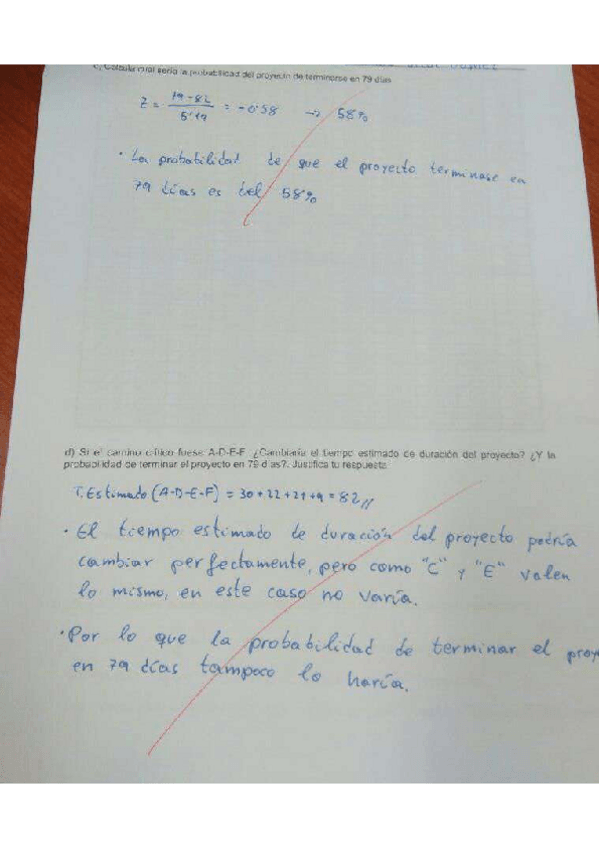 c) Calcula cual sería la probabilidad del proyecto de terminarse en 79 días
Z = 79-82 / 5'19 = -0'58 → 58%
· La probabilidad de que el proyecto terminase en
79 días es del 58%
d) Si el camino crítico fuese A-D-E-F ¿Cambiaría el tiempo estimado de duración del proyecto? ¿Y la
probabilidad de terminar el proyecto en 79 días?. Justifica tu respuesta
T. Estimado (A-D-E-F) = 30+22+21+9 = 82 //
· El tiempo estimado de duración del proyecto podría
cambiar perfectamente, pero como "C" y "E" valen
lo mismo, en este caso no varía.
· Por lo que la probabilidad de terminar el proye
en 79 días tampoco lo haría.